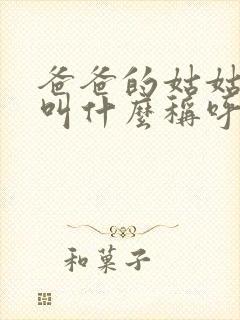 爸爸的姑姑
叫什麼稱呼
和菓子